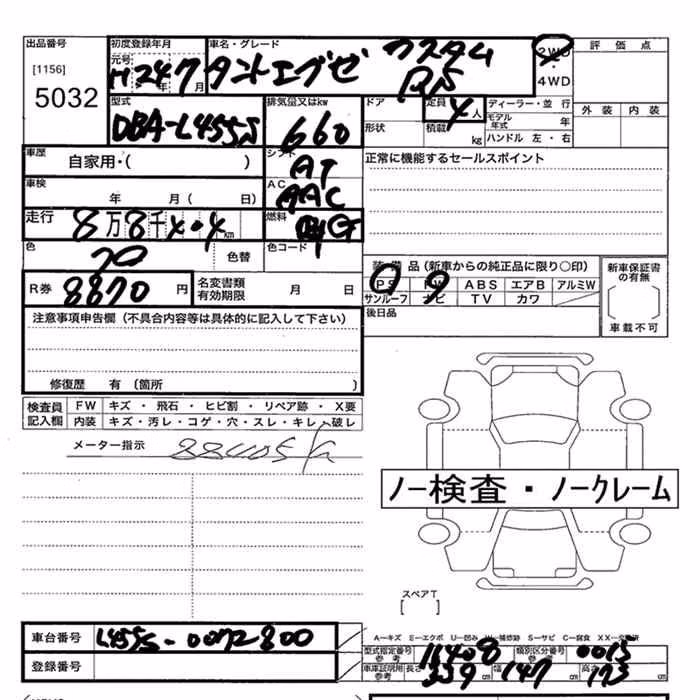 出品番号
[1156]
5032
初度登録年月
元号
H24年7月
車名・グレード
タントエグゼ カスタム
RS
2WD
・
4WD
評価点
外装 内装
型式
DBA-L455S
排気量又はkw
660
ドア
形状
定員
4人
積載
kg
ディーラー・並行
モデル年式 年
ハンドル 左・右
車歴
自家用・( )
シフト
AT
正常に機能するセールスポイント
車検
年 月( 日)
AC
AAC
走行
8万8千404km
燃料
色
色替
色コード
R券
8870円
名変書類
有効期限
月 日
装備品(新車からの純正品に限り○印)
PS PW ABS エアB アルミW
サンルーフ ナビ TV カワ
後日品
新車保証書
の有無
車載不可
注意事項申告欄(不具合内容等は具体的に記入して下さい)
修復歴 有〔箇所 〕
検査員
記入欄
FW キズ・飛石・ヒビ割・リペア跡・X要
内装 キズ・汚レ・コゲ・穴・スレ・キレ・破レ
メーター指示
88405k
ノー検査・ノークレーム
スペアT
[ ]
車台番号
L455S-0072800
登録番号
A―キズ E―エクボ U―凹み W―補修跡 S―サビ C―腐食 XX―交換済
型式指定番号
参考
16408
類別区分番号
参考
0013
車庫証明用
参考
長さ 339cm 幅 147cm 高さ 173cm